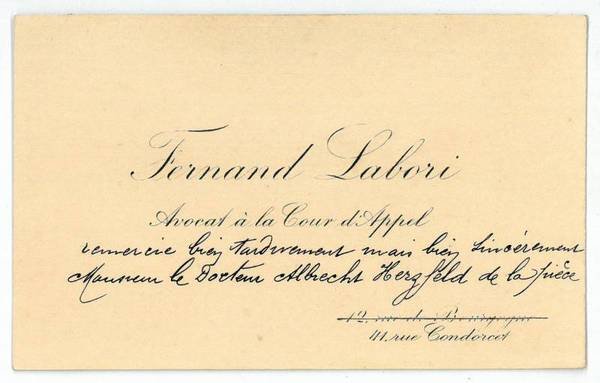 Fernand Labori
Avocat à la Cour d'Appel
remercie bien tardivement mais bien sincèrement
Monsieur le Docteur Albrecht Herzfeld de la pièce
12, rue de Bourgogne
41, rue Condorcet